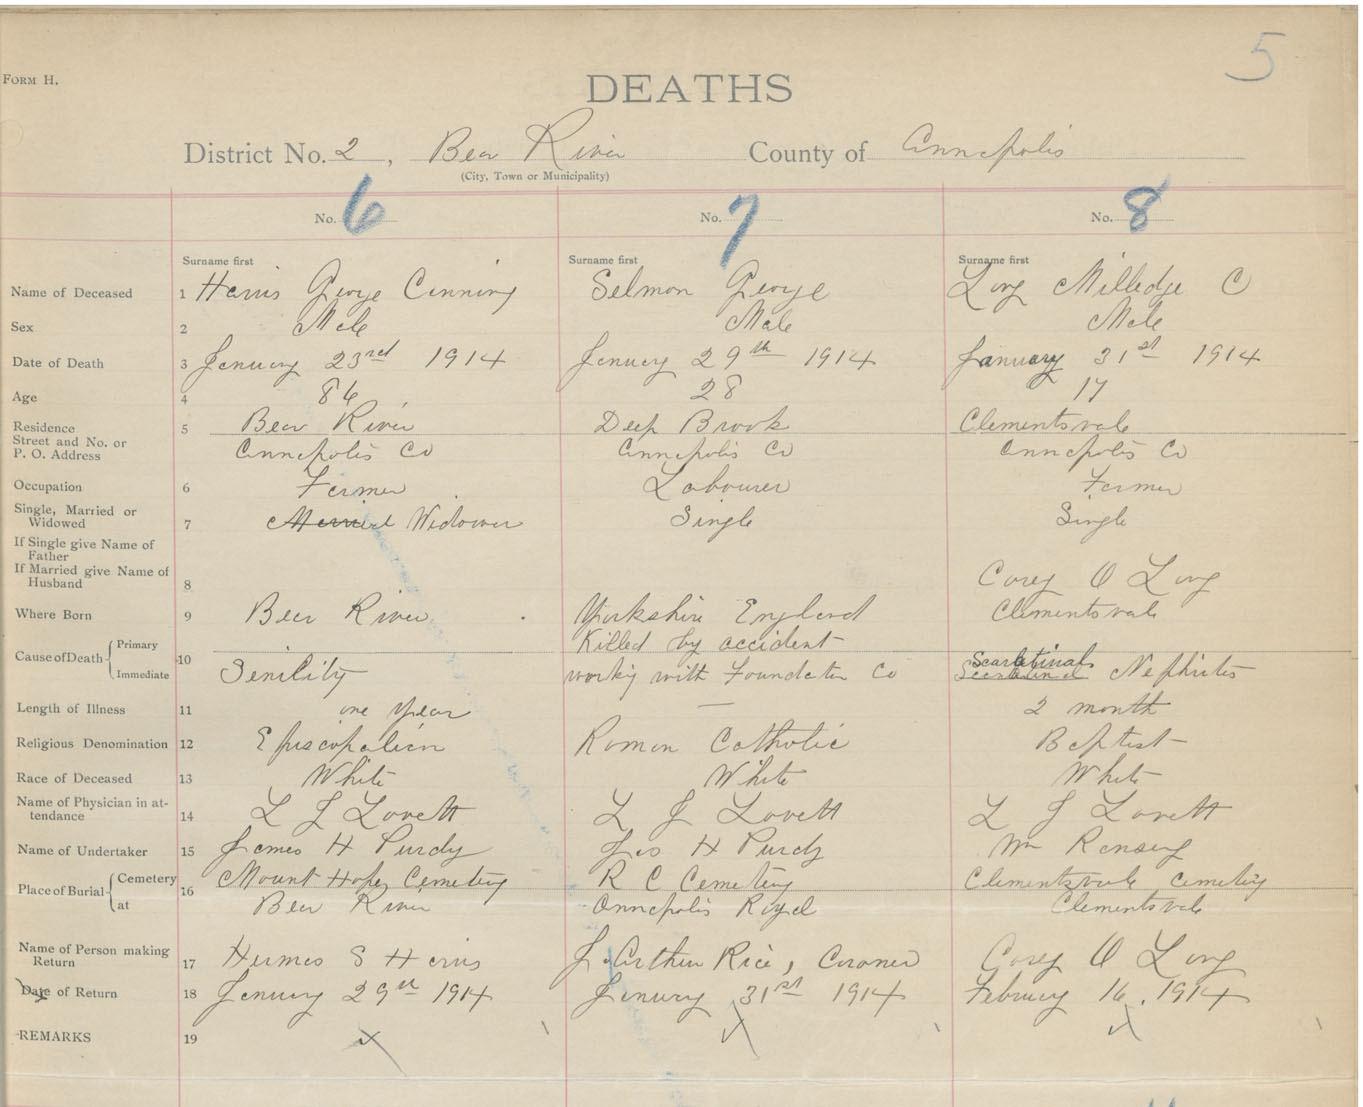 5
FORM H.
DEATHS
District No. 2, Bear River County of Annapolis
(City, Town or Municipality)
No. 6 No. 7 No. 8
Surname first Surname first Surname first
Name of Deceased 1 Harris George Cunning Selmon George Long Milledge C
Sex 2 Male Male Male
Date of Death 3 January 23rd 1914 January 29th 1914 January 31st 1914
Age 4 86 28 17
Residence 5 Bear River Deep Brook Clementsvale
Street and No. or
P. O. Address Annapolis Co Annapolis Co Annapolis Co
Occupation 6 Farmer Labourer Farmer
Single, Married or
Widowed 7 Married Widower Single Single
If Single give Name of
Father
If Married give Name of
Husband 8 Corey O Long
Where Born 9 Bear River Yorkshire England Clementsvale
Cause of Death Primary 10 Killed by accident
Immediate Senility working with Foundation Co Scarlatinal Nephrites
Length of Illness 11 one year — 2 month
Religious Denomination 12 Episcopalian Roman Catholic Baptist
Race of Deceased 13 White White White
Name of Physician in at-
tendance 14 L J Lovett L J Lovett L J Lovett
Name of Undertaker 15 James H Purdy Jas H Purdy Wm
Place of Burial Cemetery 16 Mount Hope Cemetery R C Cemetery Clementsvale Cemetery
at Bear River Annapolis Royal Clementsvale
Name of Person making
Return 17 Hermes S Harris J. Arthur Rice, Coroner Corey O Long
Date of Return 18 January 29th 1914 January 31st 1914 February 16, 1914
REMARKS 19 x x x